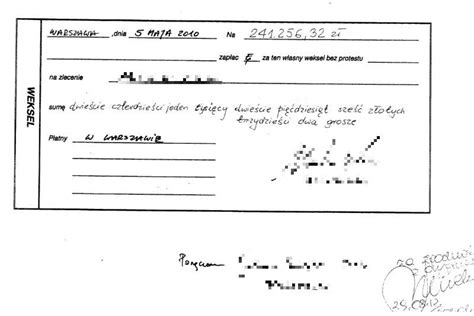 WARSZAWA, dnia 5 MAJA 2010 Na 241.256,32 zł
zapłac Ę za ten własny weksel bez protestu
na zlecenie
sumę dwieście czterdzieści jeden tysięcy dwieście pięćdziesiąt sześć złotych
trzydzieści dwa grosze
WEKSEL
Płatny W WARSZAWIE
Poręczam
za zgodność